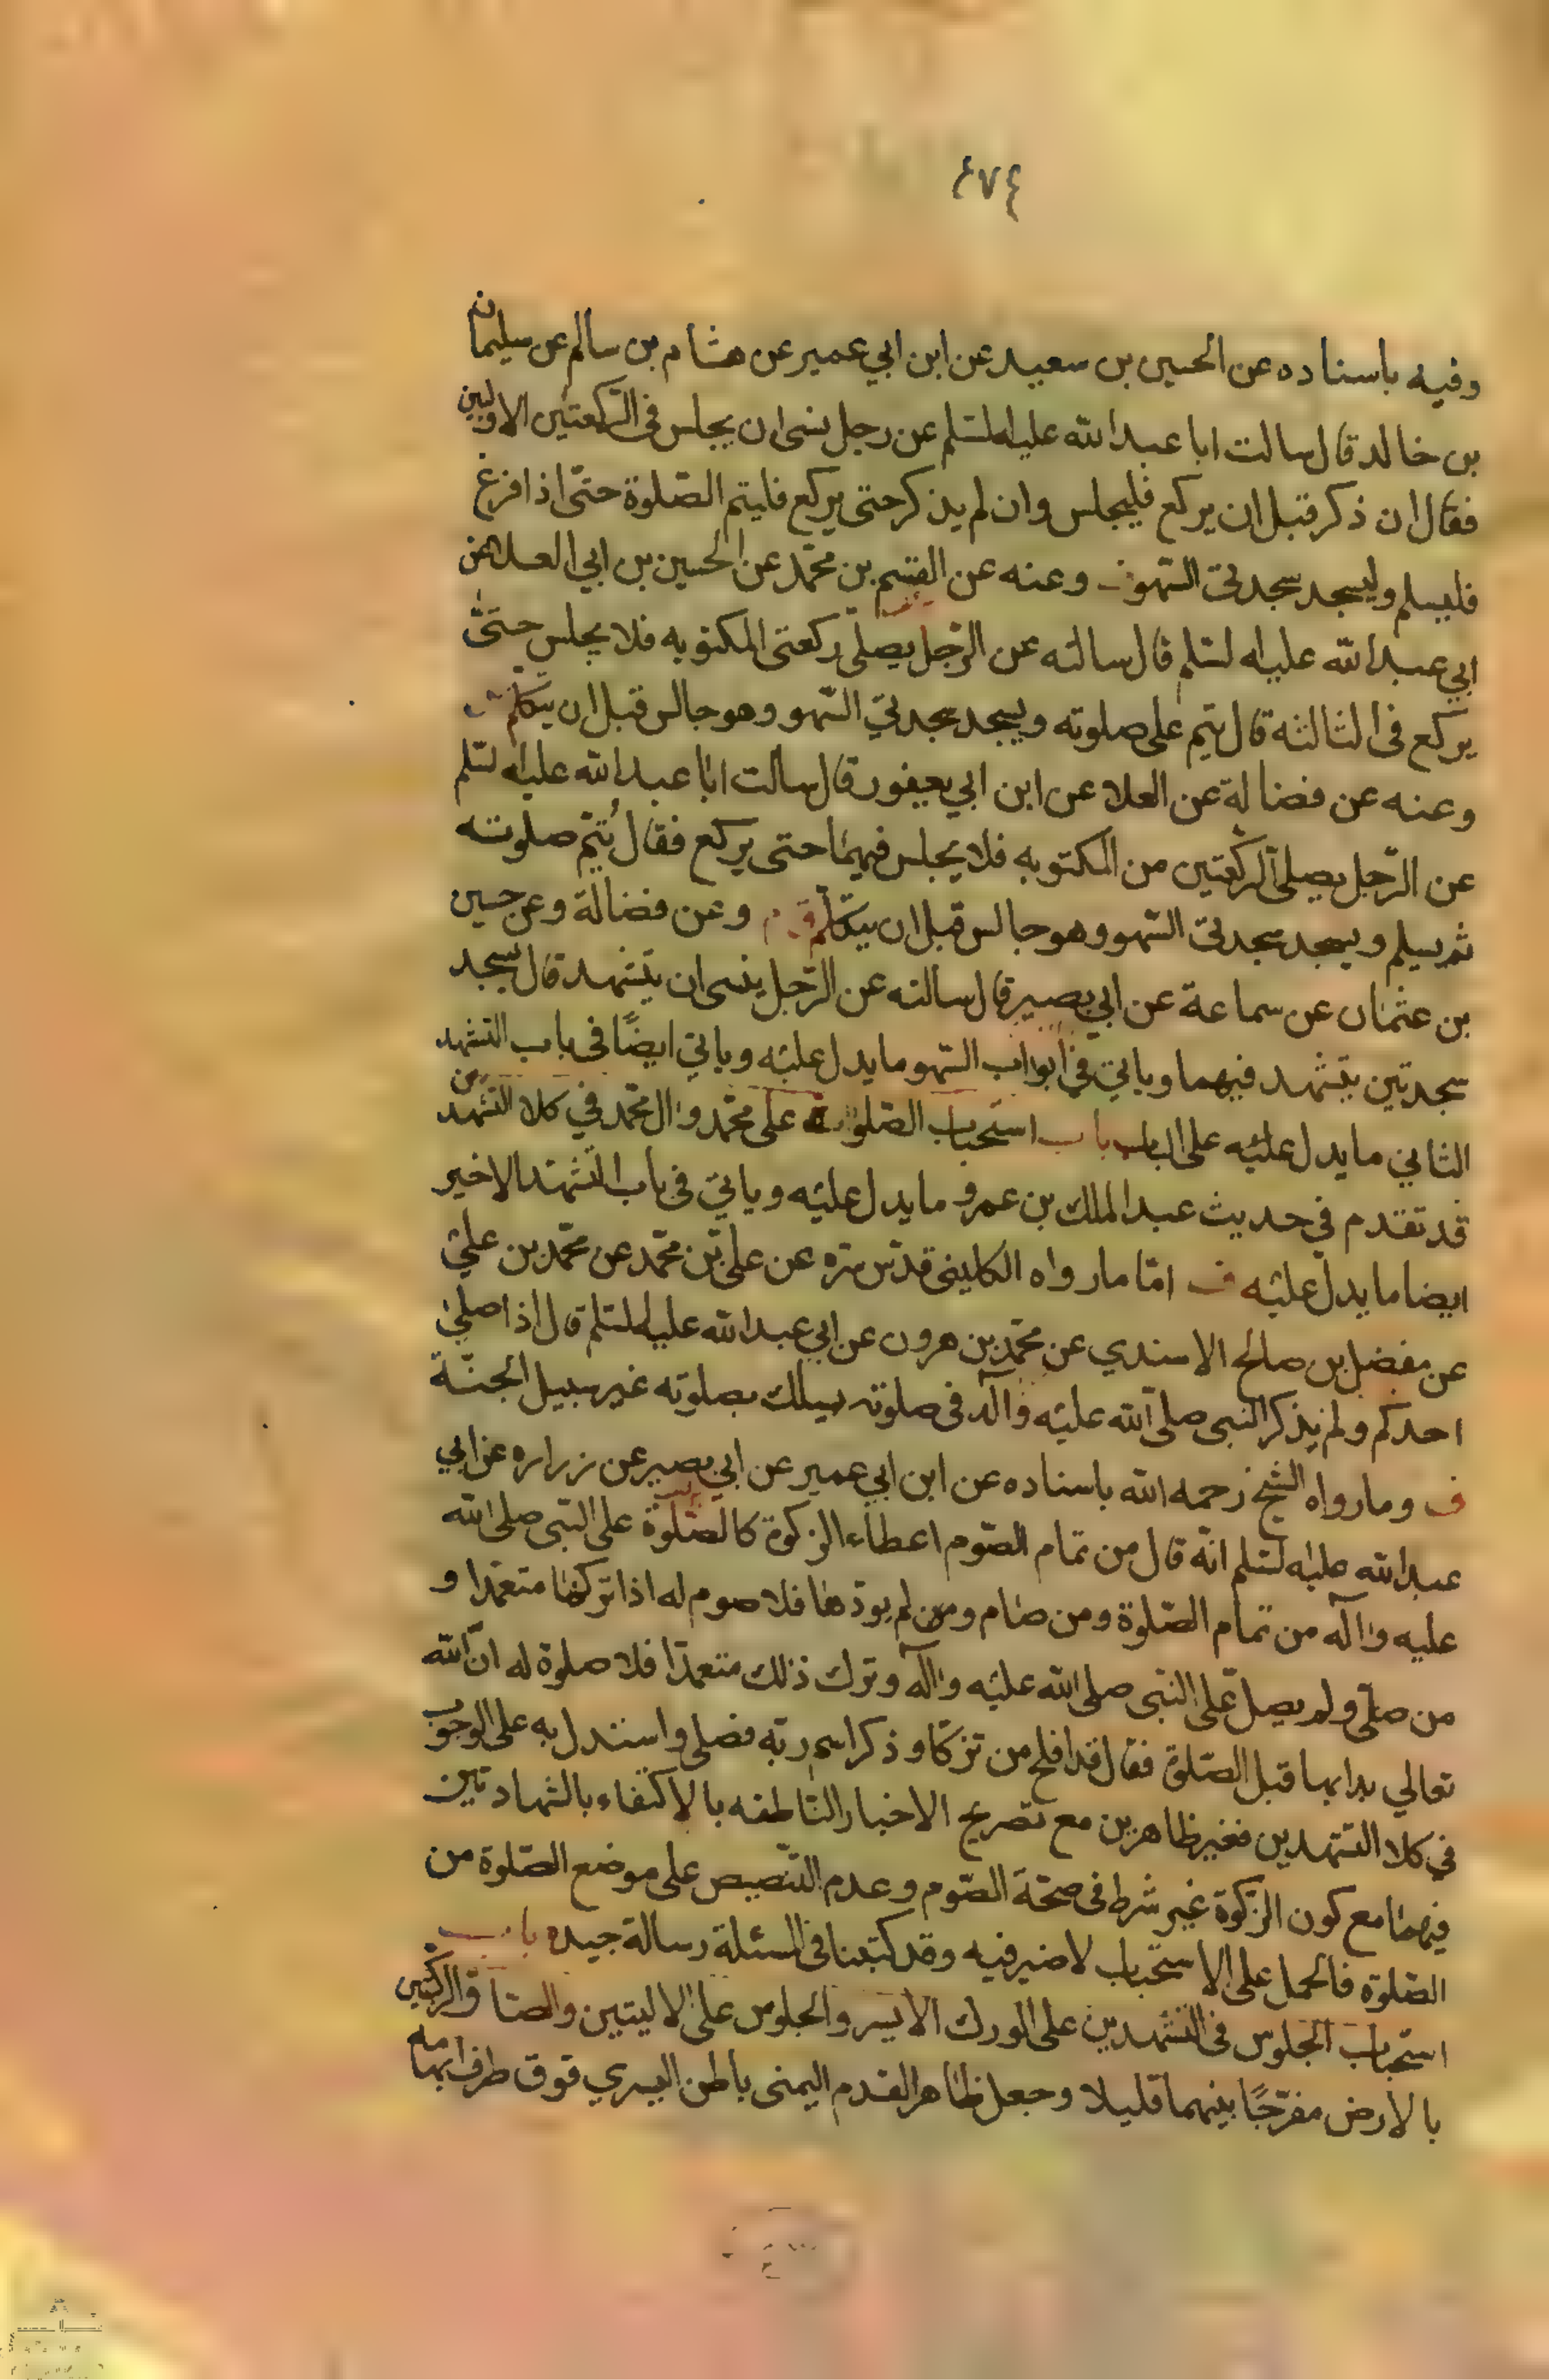 ٤٧٤
وفيه باسناده عن الحسين بن سعيد عن ابن ابي عمير عن هشام بن سالم عن سليمان
بن خالد قال سالت ابا عبدالله عليه السلم عن رجل نسى ان يجلس فى الركعتين الاوليين
فقال ان ذكر قبل ان يركع فليجلس وان لم يذكر حتى يركع فليتم الصلوة حتى اذا فرغ
فليسلم وليسجد سجدتى السهو وعنه عن القسم بن محمد عن الحسين بن ابي العلا عن
ابي عبدالله عليه السلم قال سالته عن الرجل يصلى ركعتى المكتوبه فلا يجلس حتى
يركع فى الثالثه قال يتم على صلوته ويسجد سجدتي السهو وهو جالس قبل ان يتكلم
وعنه عن فضالة عن العلا عن ابن ابي يعفور قال سالت ابا عبدالله عليه السلم
عن الرجل يصلى الركعتين من المكتوبه فلا يجلس فيهما حتى يركع فقال يُتم صلوته
ثم يسلم ويسجد سجدتى السهو وهو جالس قبل ان يتكلم وعن فضالة وعن حسين
بن عثمان عن سماعة عن ابي بصير قال سالته عن الرجل ينسى ان يتشهد قال يسجد
سجدتين يتشهد فيهما وياتي في ابواب السهو ما يدل عليه وياتي ايضًا فى باب التشهد
الثاني ما يدل عليه على الباب باب استحباب الصلوة على محمد وال محمد في كلا التشهدين
قد تقدم في حديث عبد الملك بن عمرو ما يدل عليه وياتي فى باب التشهد الاخير
ايضا ما يدل عليه ف امّا ما رواه الكلينى قدس سره عن على بن محمد عن محمد بن على
عن مفضل بن صالح الاسندي عن محمد بن هرون عن ابي عبدالله عليه السلم قال اذا صلى
احدكم ولم يذكر النبى صلى الله عليه واله فى صلوته يسلك بصلوته غير سبيل الجنّة
ف وما رواه الشيخ رحمه الله باسناده عن ابن ابي عمير عن ابي بصير عن زراره عن ابي
عبدالله عليه السلم انه قال من تمام الصوم اعطاء الزكوة كالصلوة على النبى صلى الله
عليه واله من تمام الصلوة ومن صام ومن لم يودها فلا صوم له اذا تركها متعمدا و
من صلى ولم يصل على النبى صلى الله عليه واله وترك ذلك متعمدًا فلا صلوة له ان الله
تعالي بدا بها قبل الصلوة فقال قد افلح من تزكا وذكر اسم ربه فصلى واستدل به على الوجوب
في كلا التشهدين فغير ظاهرين مع تصريح الاخبار الناطقه بالاكتفاء بالشهادتين
فيهما مع كون الزكوة غير شرط فى صحة الصوم وعدم التنصيص على موضع الصلوة من
الصلوة فالحمل على الاستحباب لا ضير فيه وقد كتبنا فى المسئلة رسالة جيده باب
استحباب الجلوس فى التشهدين على الورك الايسر والجلوس على الاليتين والصاق الركبتين
بالارض مفرّجًا بينهما قليلا وجعل ظاهر القدم اليمنى باطن اليسري فوق طرف ابهامه